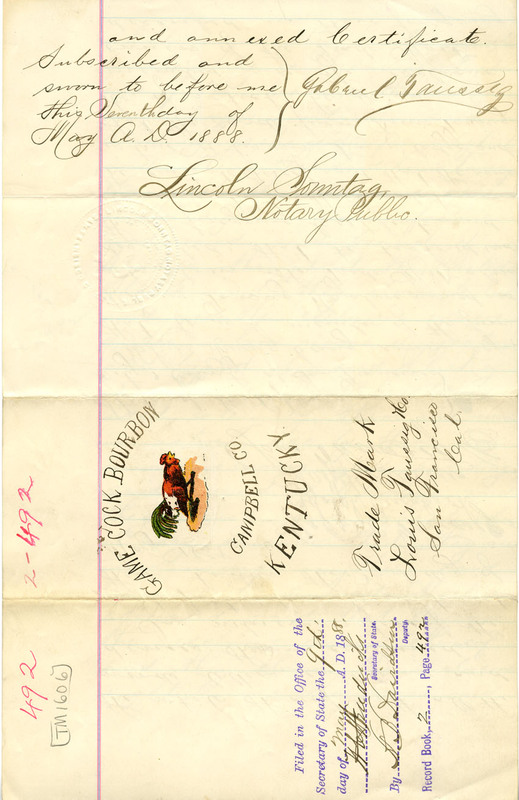 and annexed Certificate.
Subscribed and
sworn to before me
this Seventh day of
May A. D. 1888.
Gabriel Taussig
Lincoln Sonntag,
Notary Public.
GAME COCK BOURBON
CAMPBELL CO.
KENTUCKY.
Trade Mark
Louis Taussig & Co
San Francisco
Cal.
Filed in the Office of the
Secretary of State the 9th
day of May A. D. 188
Secretary of State.
By
Deputy.
Record Book, 2, Page 492
2-492
492
TM1606